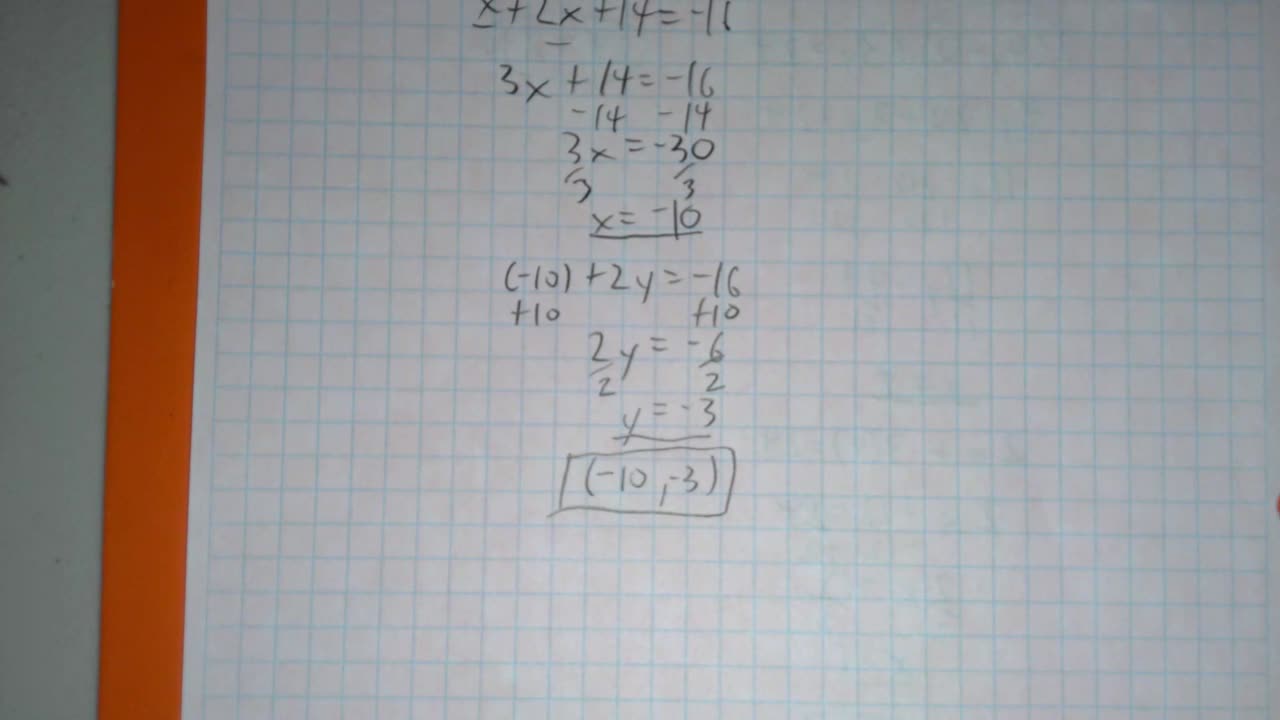 x+2x+14=-16
3x+14=-16
-14 -14
3x=-30
/3 /3
x=-10
(-10)+2y=-16
+10 +10
2y=-6
/2 /2
y=-3
(-10,-3)